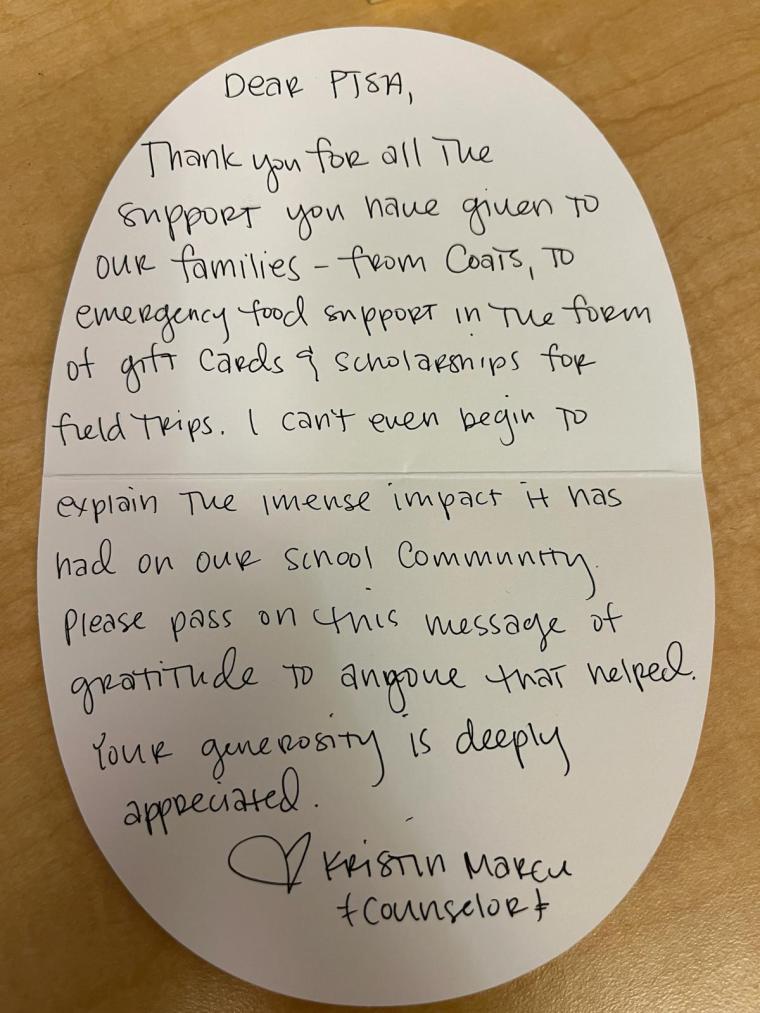 Dear PTSA,
Thank you for all the
support you have given to
our families - from Coats, to
emergency food support in the form
of gift cards & scholarships for
field trips. I can't even begin to
explain the imense impact it has
had on our school community.
Please pass on this message of
gratitude to anyone that helped.
Your generosity is deeply
appreciated.
♡ Kristin Marcu
‡Counselor‡